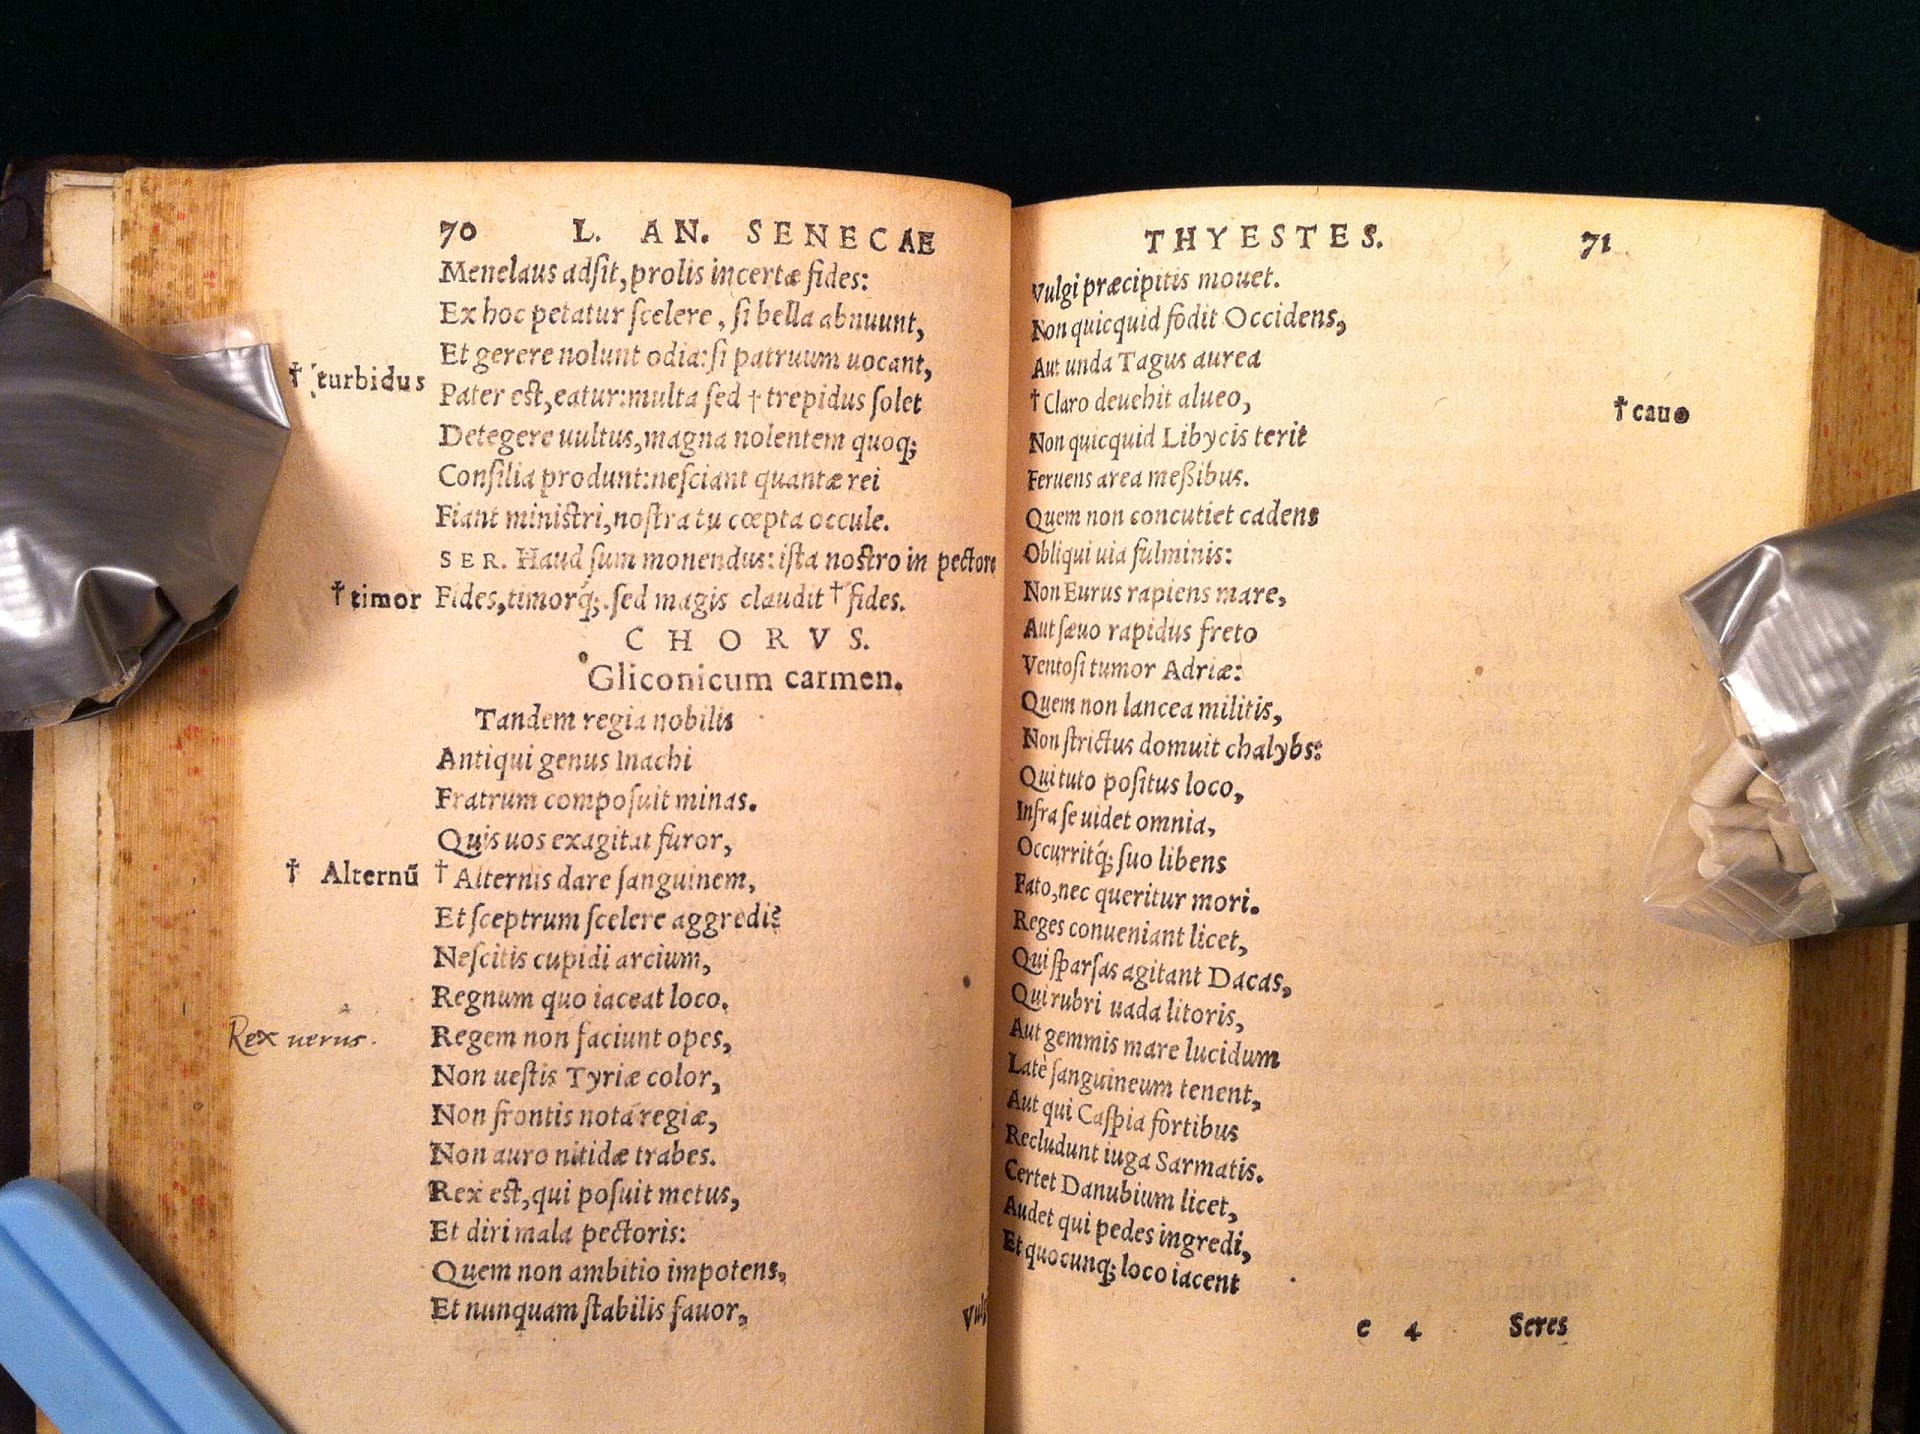 70 L. AN. SENECAE
Menelaus adſit, prolis incertæ fides:
Ex hoc petatur ſcelere, ſi bella abnuunt,
Et gerere nolunt odia: ſi patruum uocant,
† turbidus
Pater eſt, eatur: multa ſed † trepidus ſolet
Detegere uultus, magna nolentem quoq;
Conſilia produnt: neſciant quantæ rei
Fiant miniſtri, noſtra tu cœpta occule.
SER. Haud ſum monendus: iſta noſtro in pectore
† timor
Fides, timorq́; ſed magis claudit † fides.
CHORVS.
Gliconicum carmen.
Tandem regia nobilis
Antiqui genus Inachi
Fratrum compoſuit minas.
Quis uos exagitat furor,
† Alternũ
† Alternis dare ſanguinem,
Et ſceptrum ſcelere aggredi?
Neſcitis cupidi arcium,
Regnum quo iaceat loco.
Rex uerus.
Regem non faciunt opes,
Non ueſtis Tyriæ color,
Non frontis nota regiæ,
Non auro nitidæ trabes.
Rex eſt, qui poſuit metus,
Et diri mala pectoris:
Quem non ambitio impotens,
Et nunquam ſtabilis fauor,
THYESTES. 71
Vulgi præcipitis mouet.
Non quicquid fodit Occidens,
Aut unda Tagus aurea
† Claro deuehit alueo,
† cauo
Non quicquid Libycis terit
Feruens area meßibus.
Quem non concutiet cadens
Obliqui uia fulminis:
Non Eurus rapiens mare,
Aut ſæuo rapidus freto
Ventoſi tumor Adriæ:
Quem non lancea militis,
Non ſtrictus domuit chalybs:
Qui tuto poſitus loco,
Infra ſe uidet omnia,
Occurritq́; ſuo libens
Fato, nec queritur mori.
Reges conueniant licet,
Qui ſparſas agitant Dacas,
Qui rubri uada litoris,
Aut gemmis mare lucidum
Latè ſanguineum tenent,
Aut qui Caſpia fortibus
Recludunt iuga Sarmatis.
Certet Danubium licet,
Audet qui pedes ingredi,
Et quocunq; loco iacent
e 4 Seres